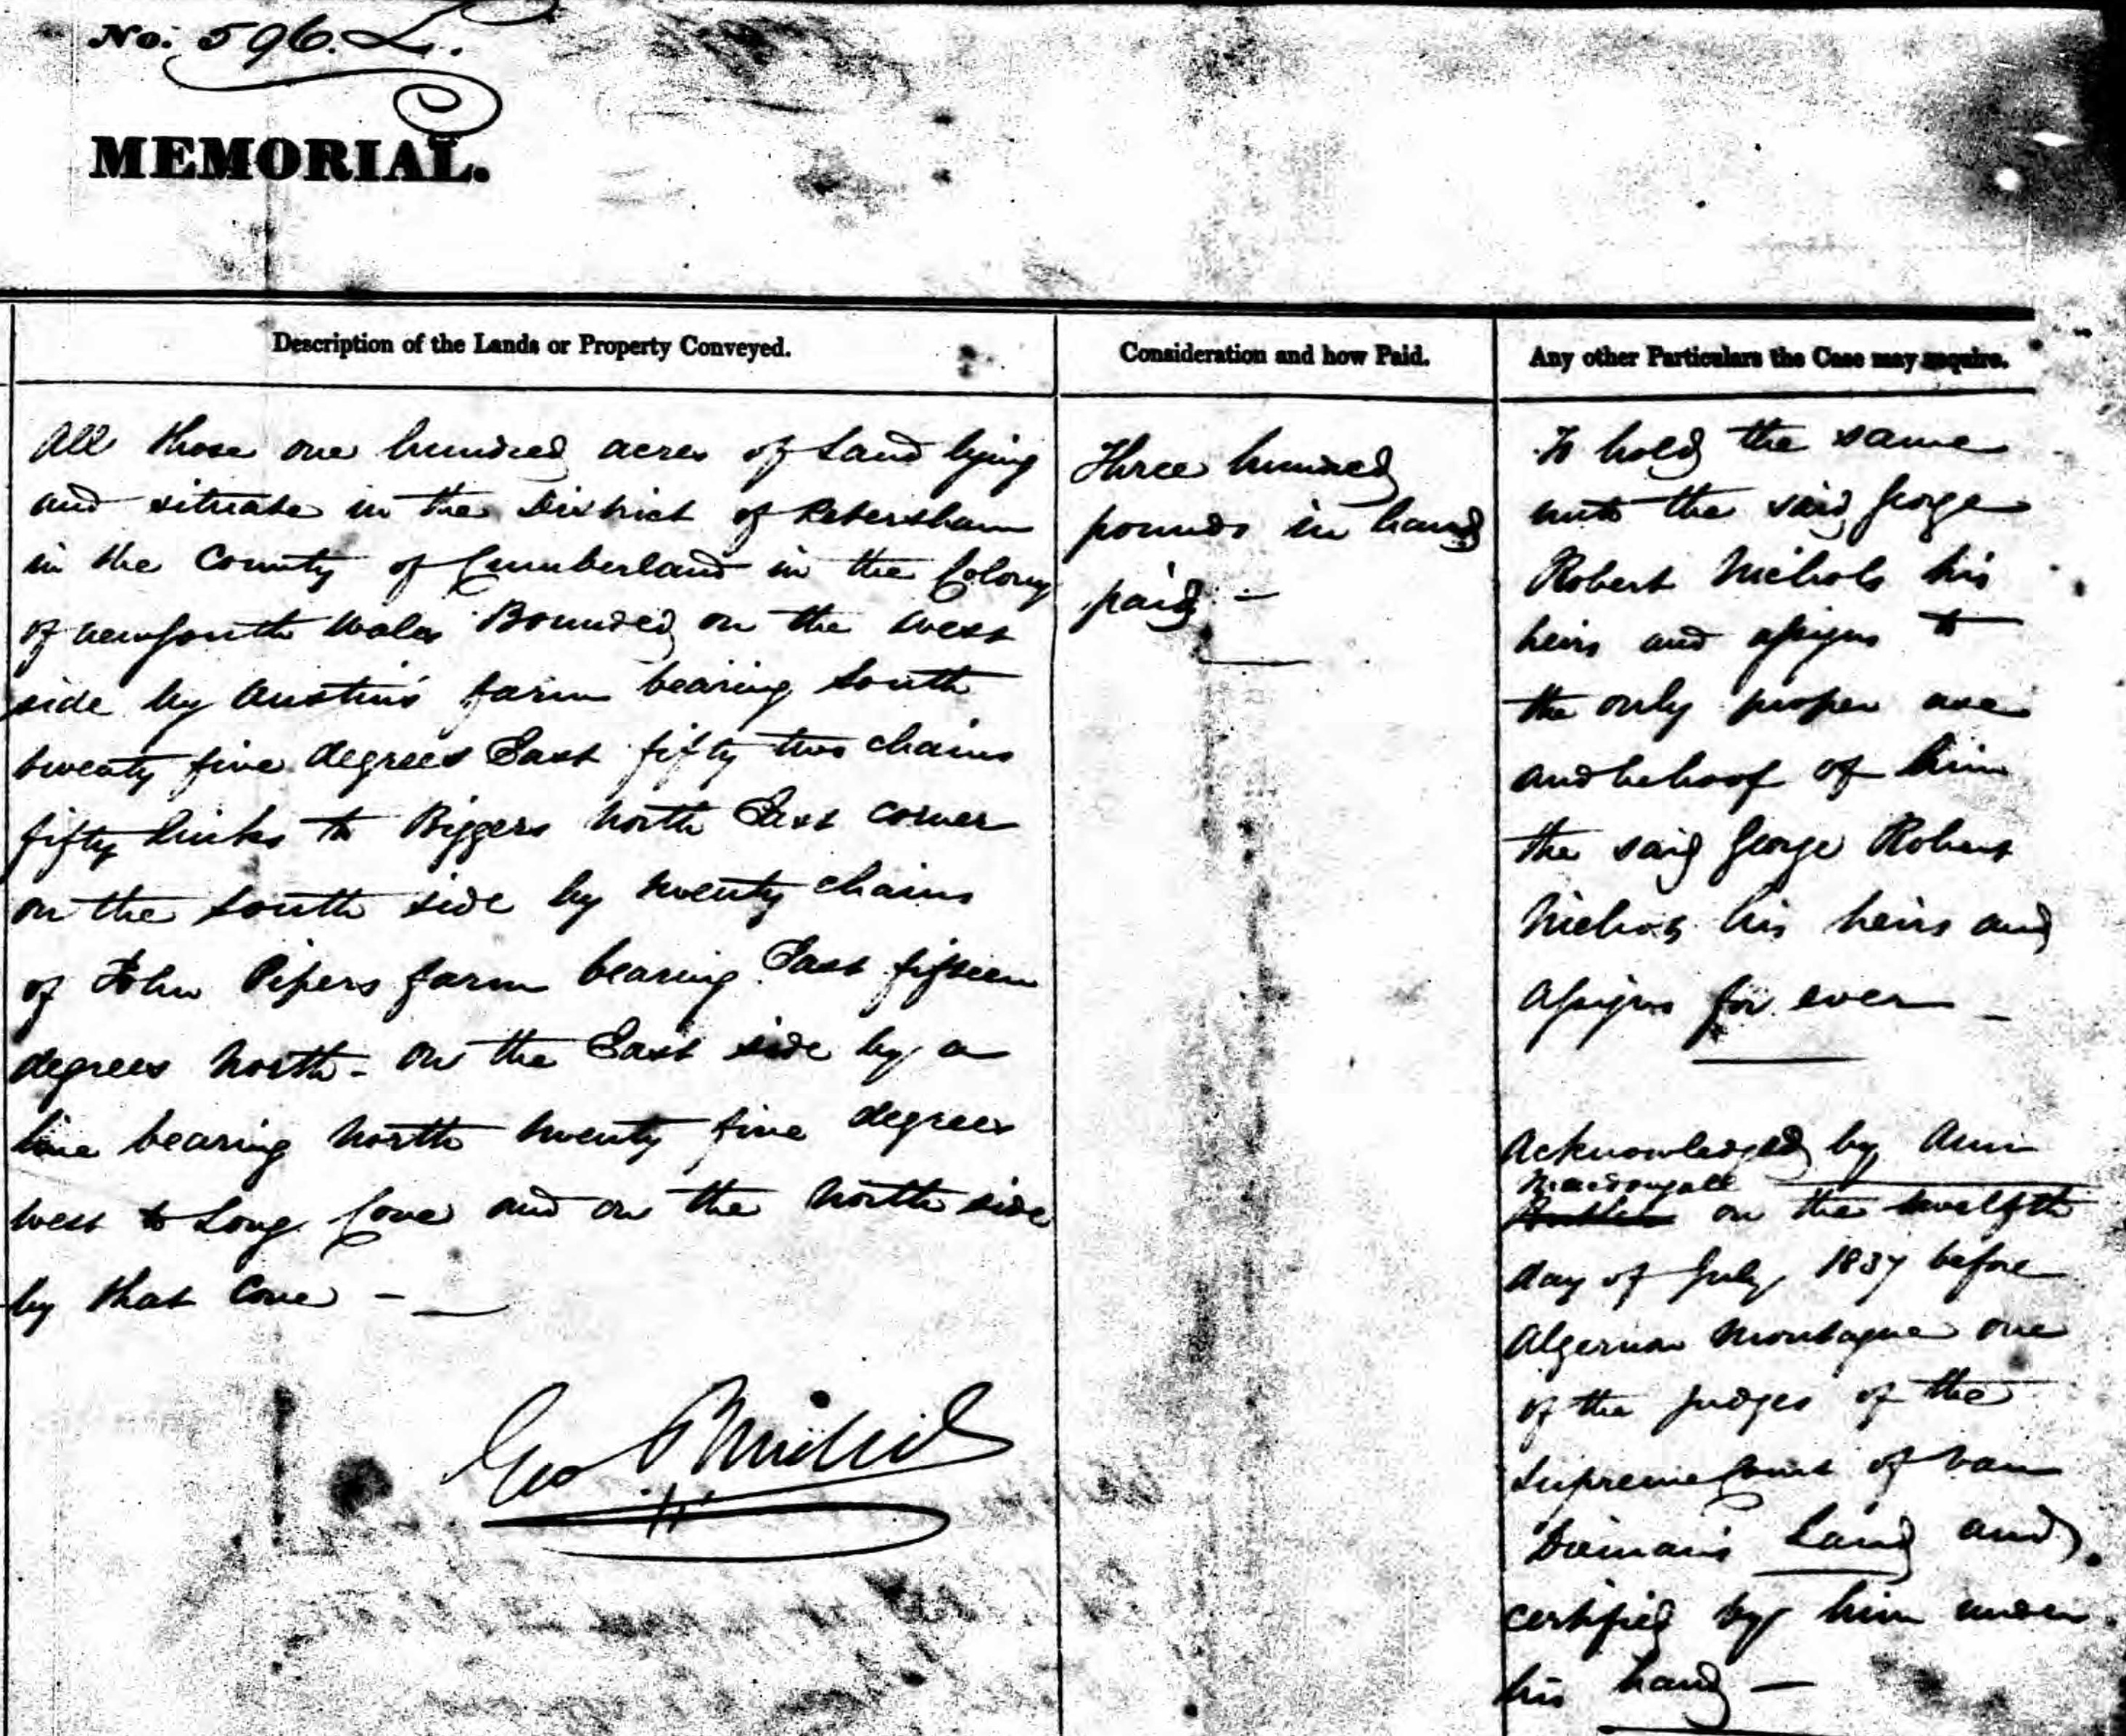 No. 596. L.
MEMORIAL.
Description of the Lands or Property Conveyed.
All those one hundred acres of Land lying
and situate in the District of Petersham
in the County of Cumberland in the Colony
of New South Wales Bounded on the West
side by Austin's farm bearing South
twenty five degrees East fifty two chains
fifty links to Biggers North East corner
on the South side by twenty chains
of John Pipers farm bearing East fifteen
degrees North - On the East side by a
line bearing North twenty five degrees
West to Long Cove and on the North side
by that Cove -
Geo R Nichols
Consideration and how Paid.
Three hundred
pounds in hand
paid -
Any other Particulars the Case may require.
To hold the same
unto the said George
Robert Nichols his
heirs and assigns to
the only proper use
and behoof of him
the said George Robert
Nichols his heirs and
assigns for ever -
Acknowledged by Ann
Macdougall
on the twelfth
day of July 1837 before
Algernon Montague one
of the Judges of the
Supreme Court of Van
Diemans Land and
certified by him under
his hand -